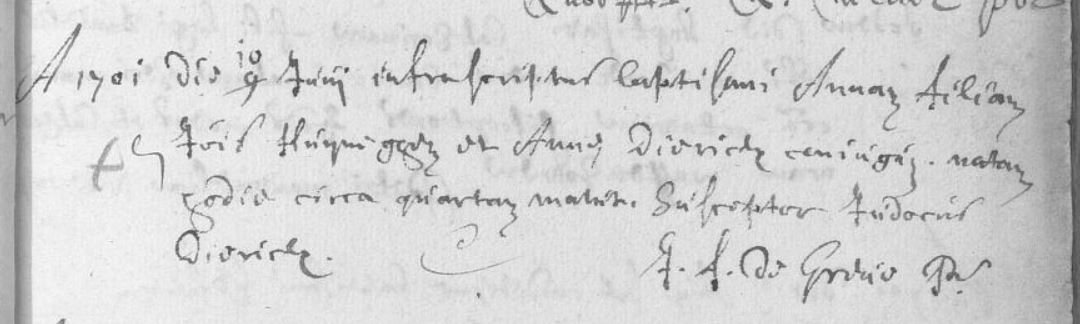 A 1701 die 10 9 Junij infrascriptus baptisavi Annam filiam
Jois et Anna Diericx coniugum natam
hodie circa quartam matuti. Susceptor Judocus
Diericx. J. F. de Greve